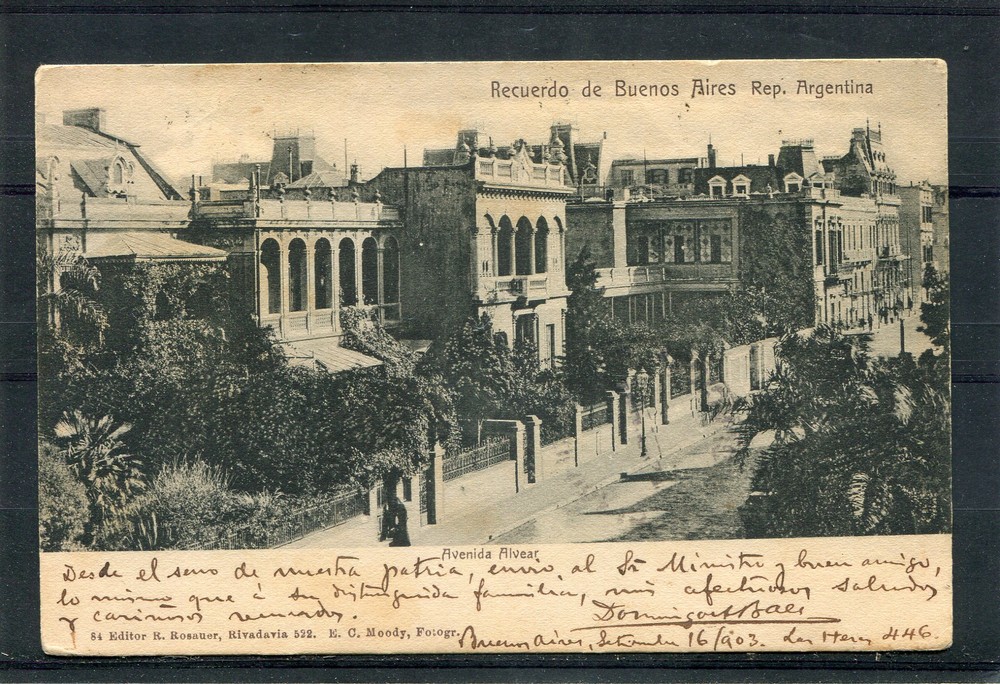 Recuerdo de Buenos Aires Rep. Argentina
Avenida Alvear
Desde el seno de nuestra patria, envio al Sr Ministro y buen amigo,
lo mismo que á su distinguida familia, mis afectuosos saludos
y cariñosos recuerdos.
84 Editor R. Rosauer, Rivadavia 522. E. C. Moody, Fotogr.
Buenos Aires, Setiembre 16/903. Las Heras 446.